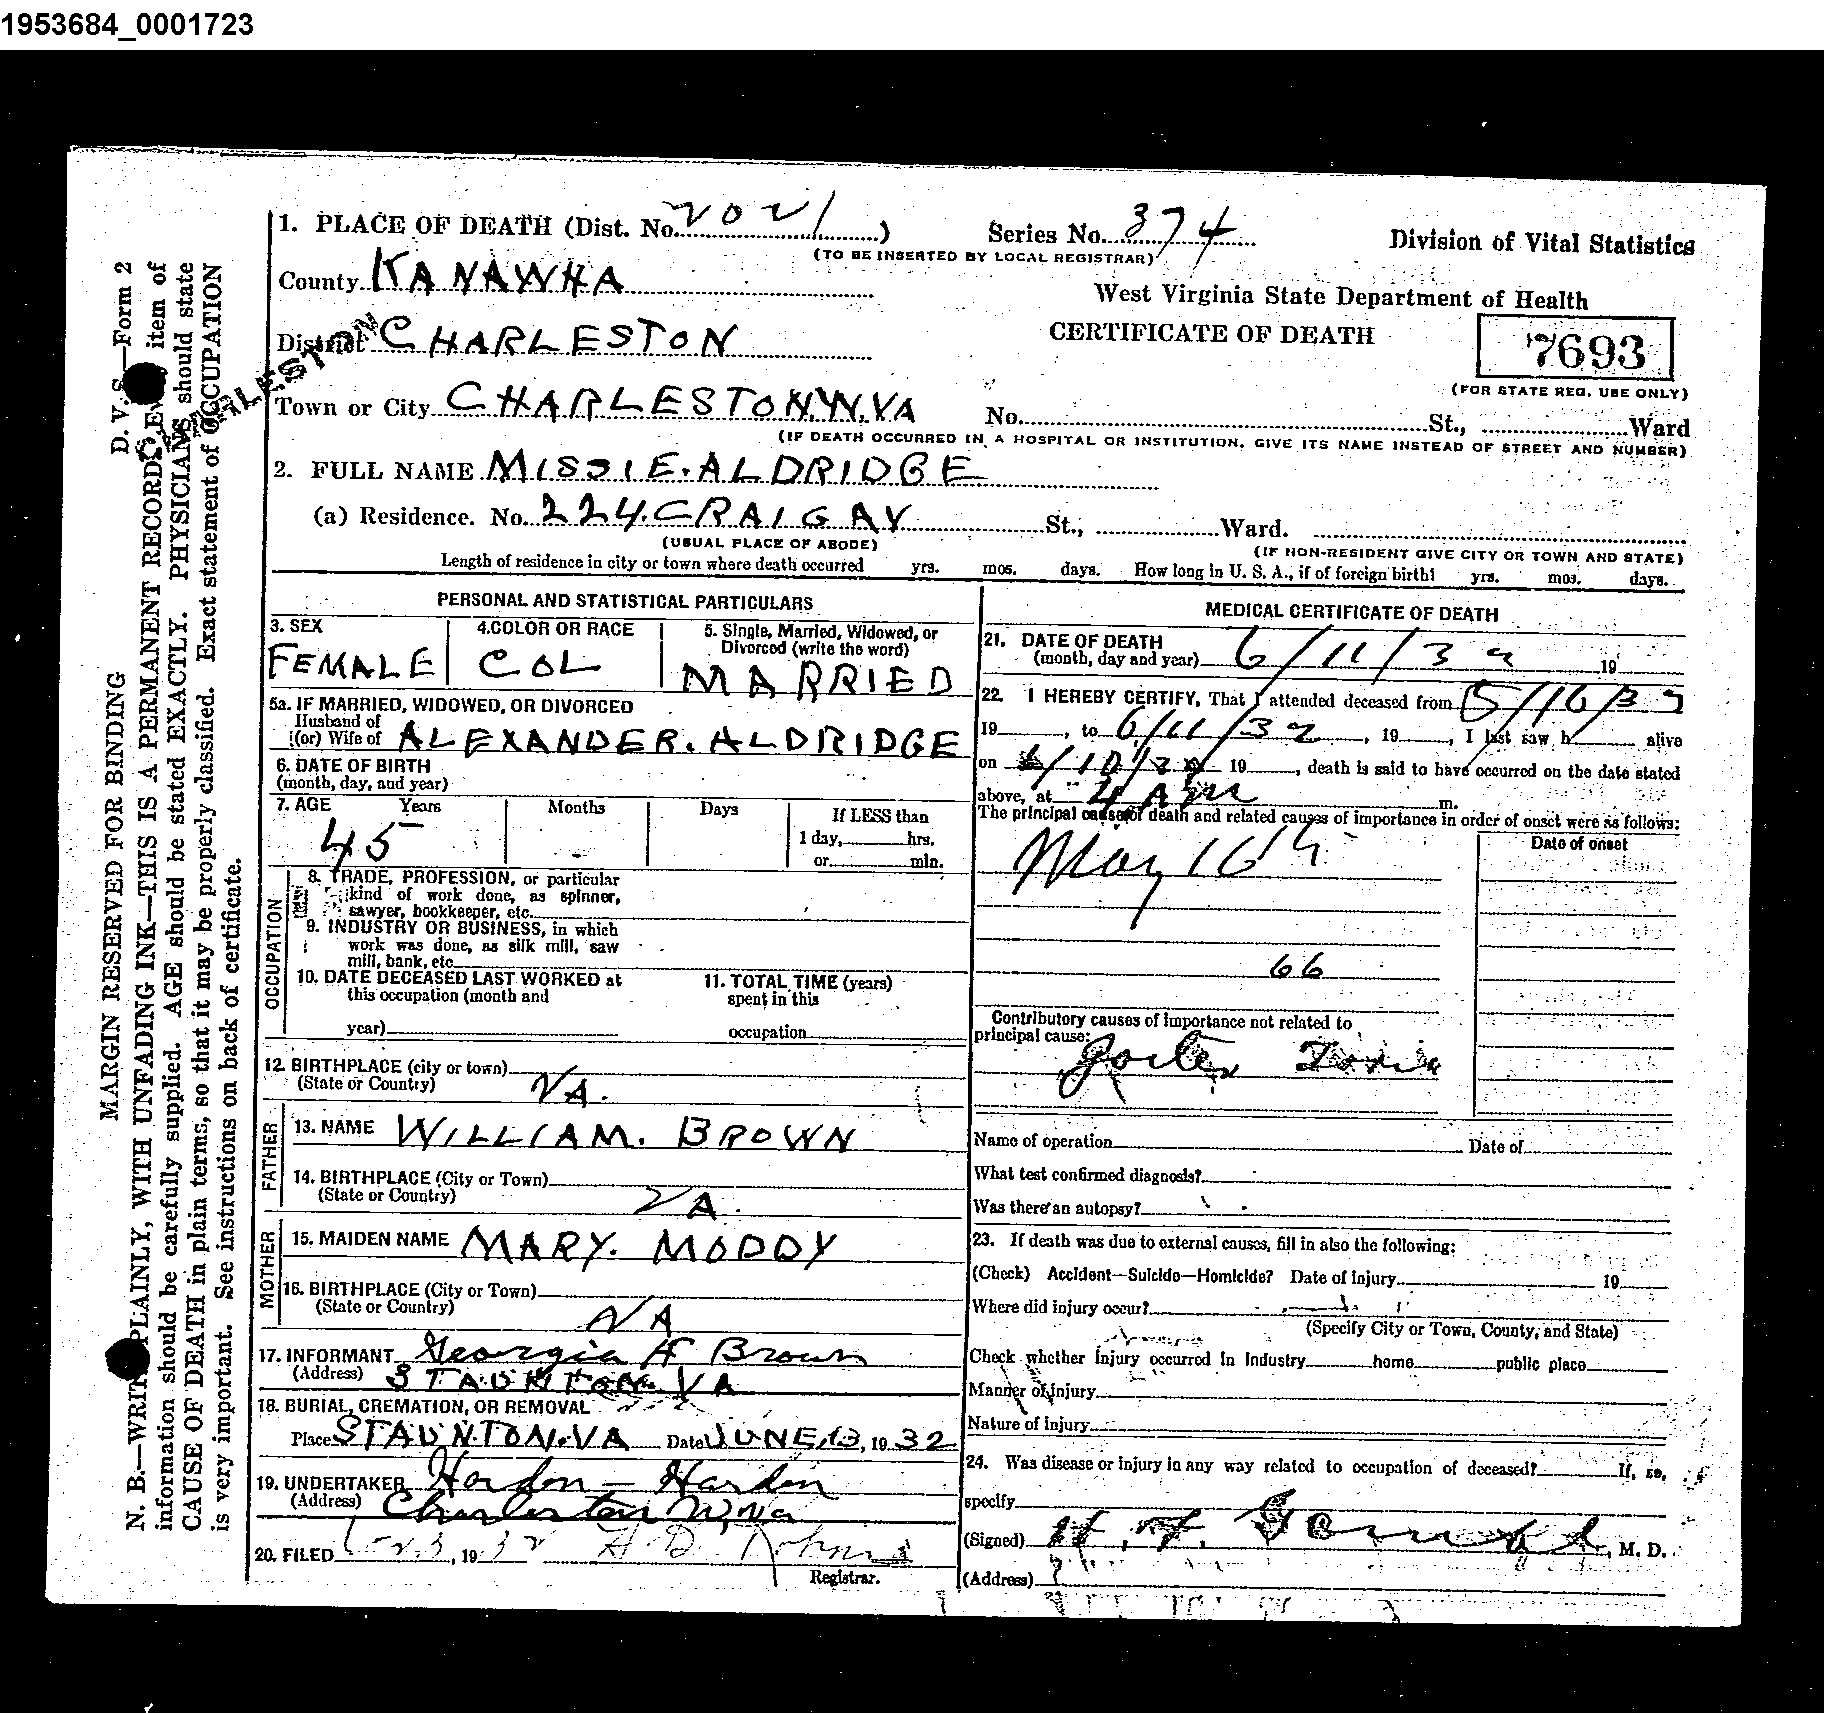 1953684_0001723
1. PLACE OF DEATH (Dist. No. 2021)
Series No. 374
(TO BE INSERTED BY LOCAL REGISTRAR)
Division of Vital Statistics
County KANAWHA
West Virginia State Department of Health
District CHARLESTON
CERTIFICATE OF DEATH
7693
(FOR STATE REG. USE ONLY)
Town or City CHARLESTON.W.VA No. St., Ward
(IF DEATH OCCURRED IN A HOSPITAL OR INSTITUTION, GIVE ITS NAME INSTEAD OF STREET AND NUMBER)
2. FULL NAME MISSIE. ALDRIDGE
(a) Residence. No. 224. CRAIG AV St., Ward.
(USUAL PLACE OF ABODE)
(IF NON-RESIDENT GIVE CITY OR TOWN AND STATE)
Length of residence in city or town where death occurred yrs. mos. days. How long in U. S. A., if of foreign birth? yrs. mos. days.
PERSONAL AND STATISTICAL PARTICULARS
3. SEX
FEMALE
4. COLOR OR RACE
COL
5. Single, Married, Widowed, or
Divorced (write the word)
MARRIED
5a. IF MARRIED, WIDOWED, OR DIVORCED
Husband of
(or) Wife of ALEXANDER. ALDRIDGE
6. DATE OF BIRTH
(month, day, and year)
7. AGE Years Months Days If LESS than
1 day, hrs.
or min.
45
OCCUPATION
8. TRADE, PROFESSION, or particular
kind of work done, as spinner,
sawyer, bookkeeper, etc.
9. INDUSTRY OR BUSINESS, in which
work was done, as silk mill, saw
mill, bank, etc.
10. DATE DECEASED LAST WORKED at
this occupation (month and
year)
11. TOTAL TIME (years)
spent in this
occupation
12. BIRTHPLACE (city or town)
(State or Country) VA.
FATHER
13. NAME WILLIAM. BROWN
14. BIRTHPLACE (City or Town)
(State or Country) VA.
MOTHER
15. MAIDEN NAME MARY. MODDY
16. BIRTHPLACE (City or Town)
(State or Country) VA
17. INFORMANT Georgia H Brown
(Address) STAUNTON VA
18. BURIAL, CREMATION, OR REMOVAL
Place STAUNTON. VA Date JUNE, 13, 1932
19. UNDERTAKER Harden - Harden
(Address) Charleston W, Va
20. FILED 6-23, 1932
Registrar.
MEDICAL CERTIFICATE OF DEATH
21. DATE OF DEATH
(month, day and year) 6/11/32 19
22. I HEREBY CERTIFY, That I attended deceased from 5/16/32
19, to 6/11/32, 19, I last saw h alive
on 6/10/32 19, death is said to have occurred on the date stated
above, at 4 AM m.
The principal cause of death and related causes of importance in order of onset were as follows:
Date of onset
May 16th
66
Contributory causes of importance not related to
principal cause:
Goiter Toxic
Name of operation Date of
What test confirmed diagnosis?
Was there an autopsy?
23. If death was due to external causes, fill in also the following:
(Check) Accident—Suicide—Homicide? Date of Injury 19
Where did injury occur?
(Specify City or Town, County, and State)
Check whether Injury occurred in Industry home public place
Manner of Injury
Nature of Injury
24. Was disease or injury in any way related to occupation of deceased? If, so,
specify
(Signed) M. D.
(Address)
D. V. S.—Form 2
MARGIN RESERVED FOR BINDING
N. B.—WRITE PLAINLY, WITH UNFADING INK—THIS IS A PERMANENT RECORD. Every item of
information should be carefully supplied. AGE should be stated EXACTLY. PHYSICIANS should state
CAUSE OF DEATH in plain terms, so that it may be properly classified. Exact statement of OCCUPATION
is very important. See instructions on back of certificate.
CHARLESTON